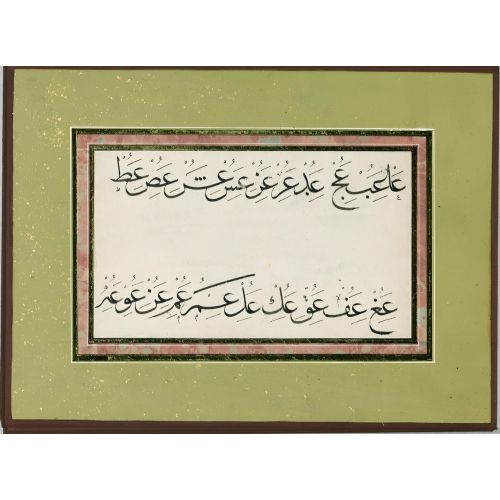 عا عب عج عد عر عز عس عس عص عط
عع عف عق عك عل عم عم عن عو عه